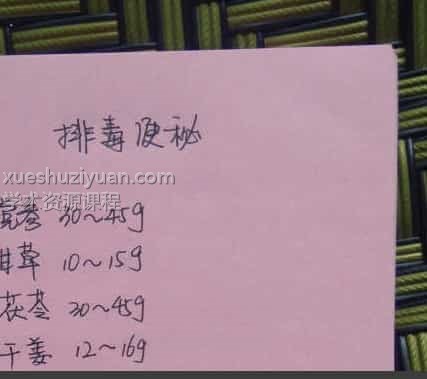 排毒便秘
xueshuziyuan.com
学术资源课程
党参 30~45g
甘草 10~15g
茯苓 30~45g
干姜 12~16g